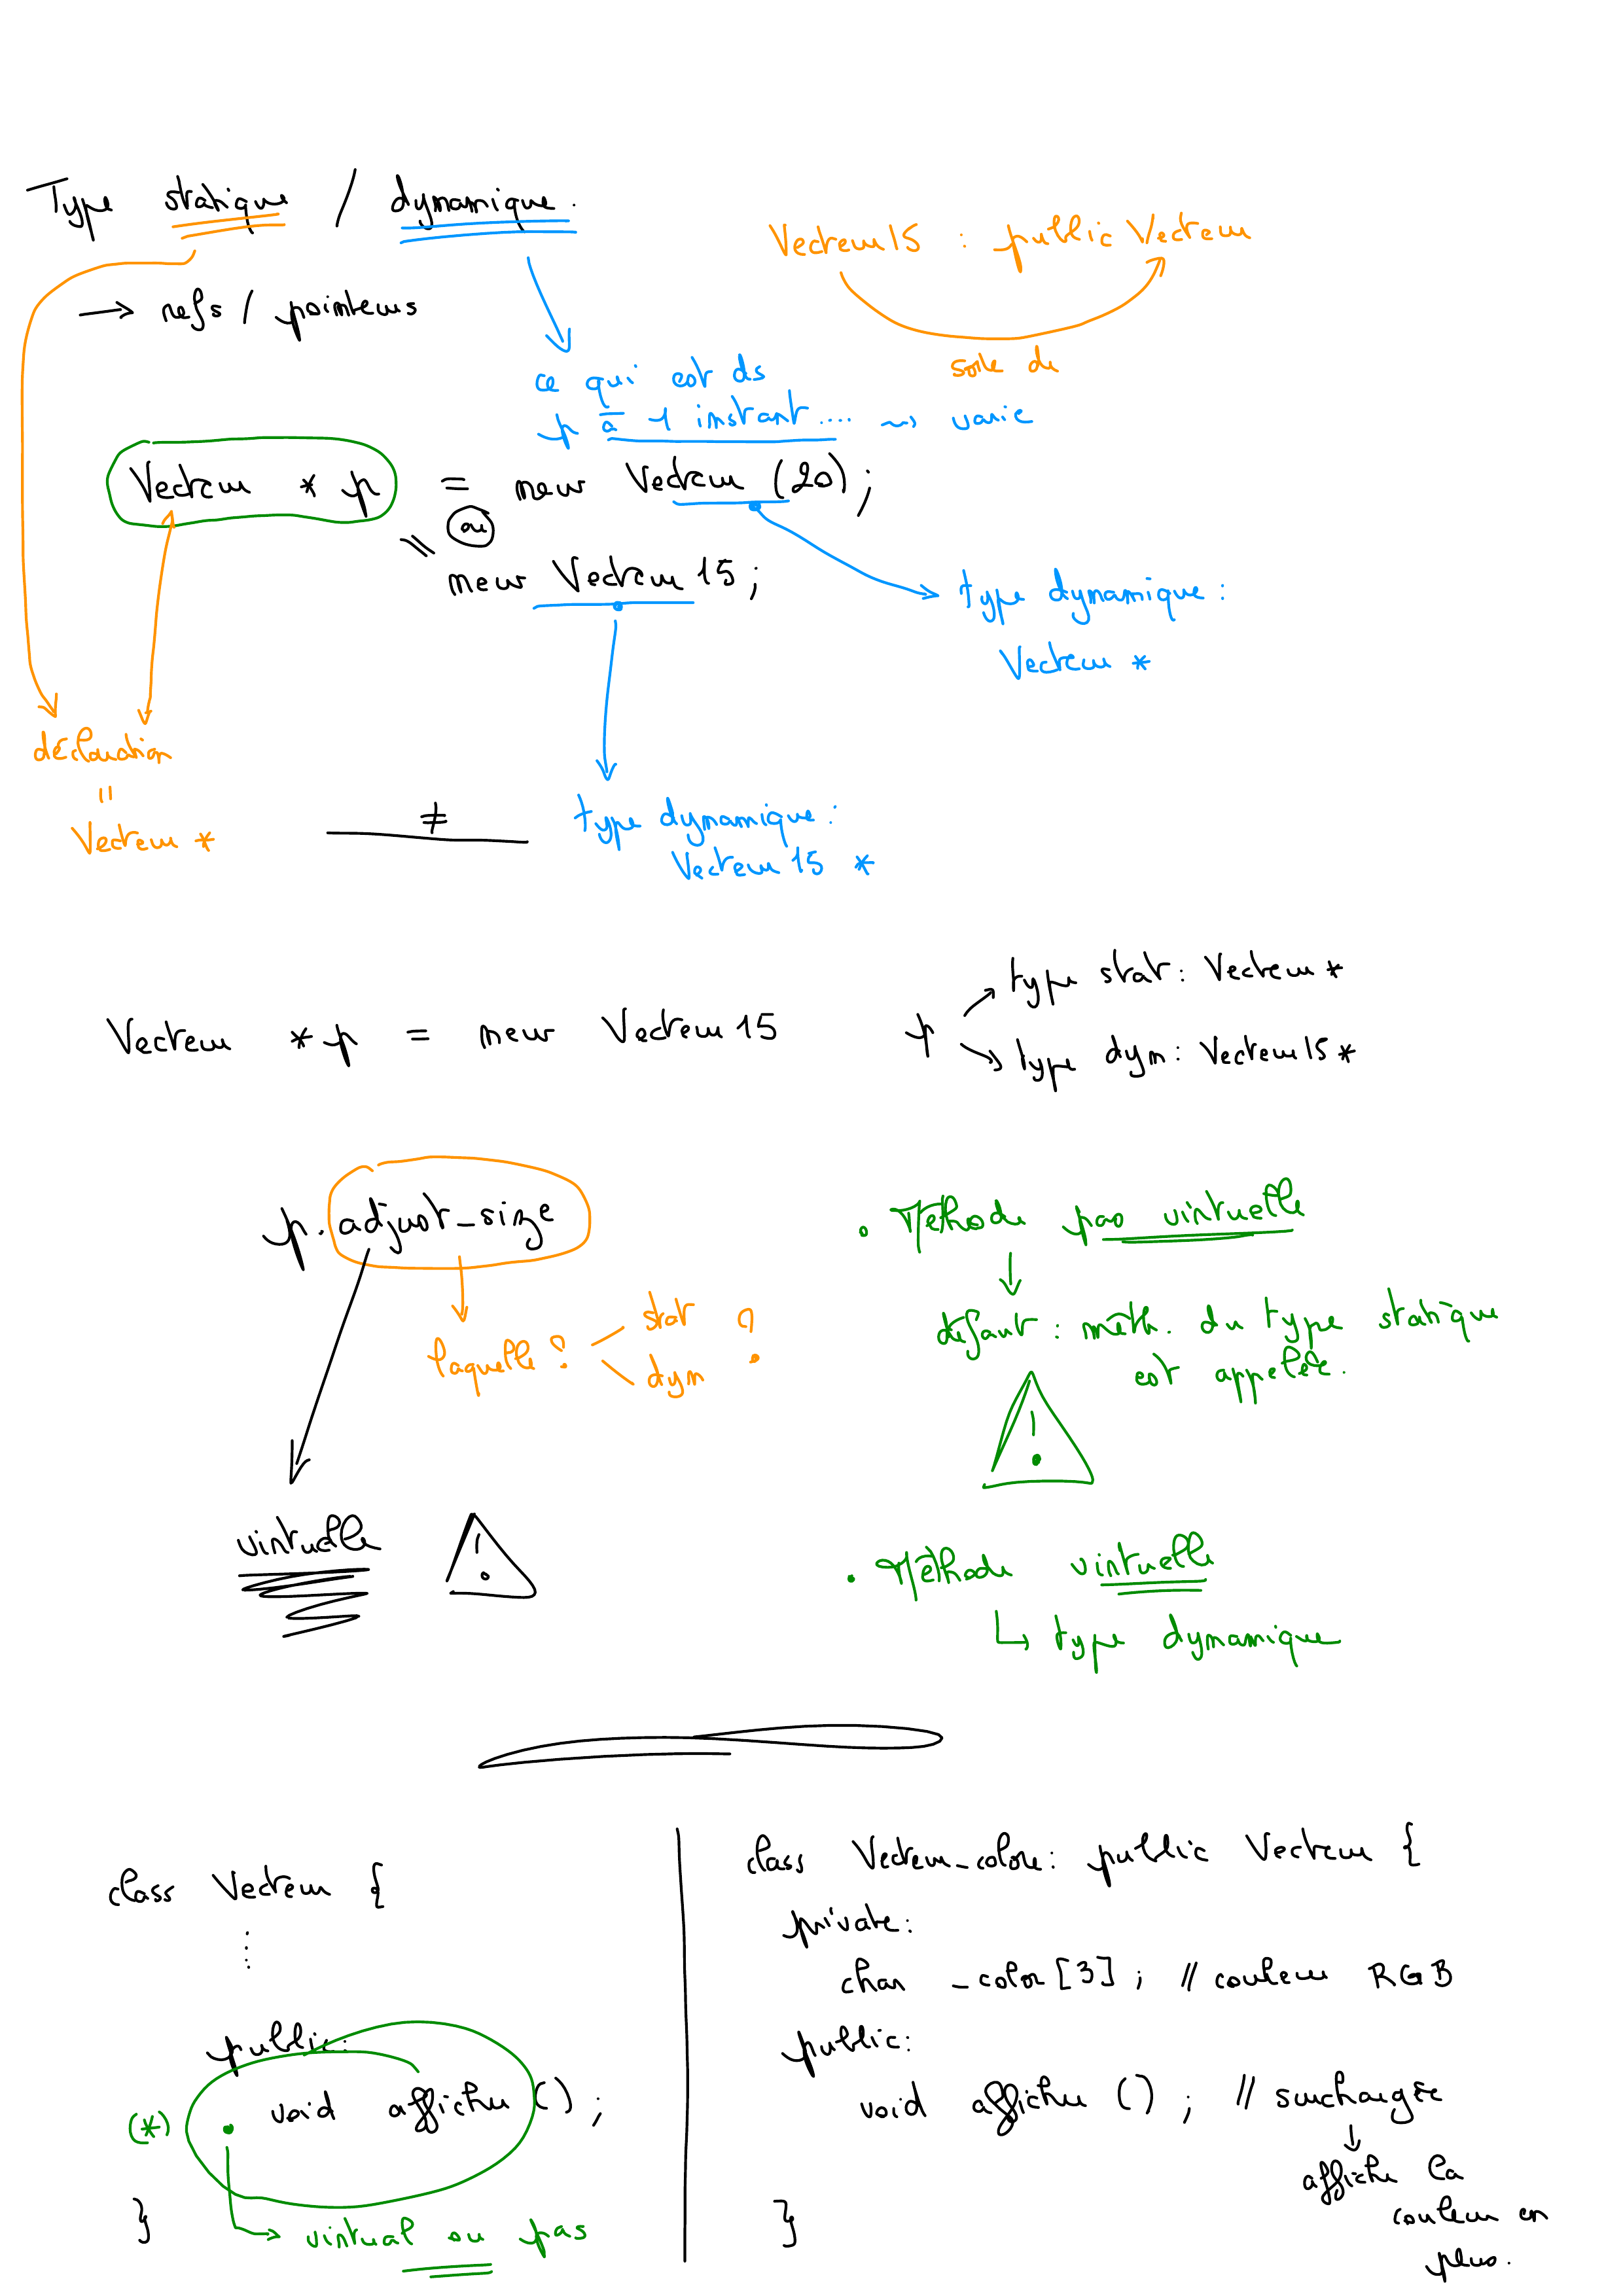 Type statique / dynamique.
Vecteur15 : public Vecteur
→ refs / pointeurs
sorte de
ce qui est ds
p à 1 instant .... ~> varie
Vecteur * p = new Vecteur (20);
ou
new Vecteur 15;
type dynamique :
Vecteur *
déclaration
=
Vecteur *
≠
type dynamique :
Vecteur 15 *
Vecteur * p = new Vecteur 15
p
type stat : Vecteur *
type dyn : Vecteur15 *
p. adjust_size
laquelle ? stat
dyn ?
virtuelle !
• Méthode pas virtuelle
↓
défaut : méth. du type statique
est appelée.
!
• Méthode virtuelle
↳ type dynamique
class Vecteur {
⋮
public:
(*) • void affiche () ;
}
virtual ou pas
class Vecteur_colore : public Vecteur {
private :
char _color [3] ; // couleur RGB
public :
void affiche () ; // surchargée
↓
affiche la
couleur en
plus.
}